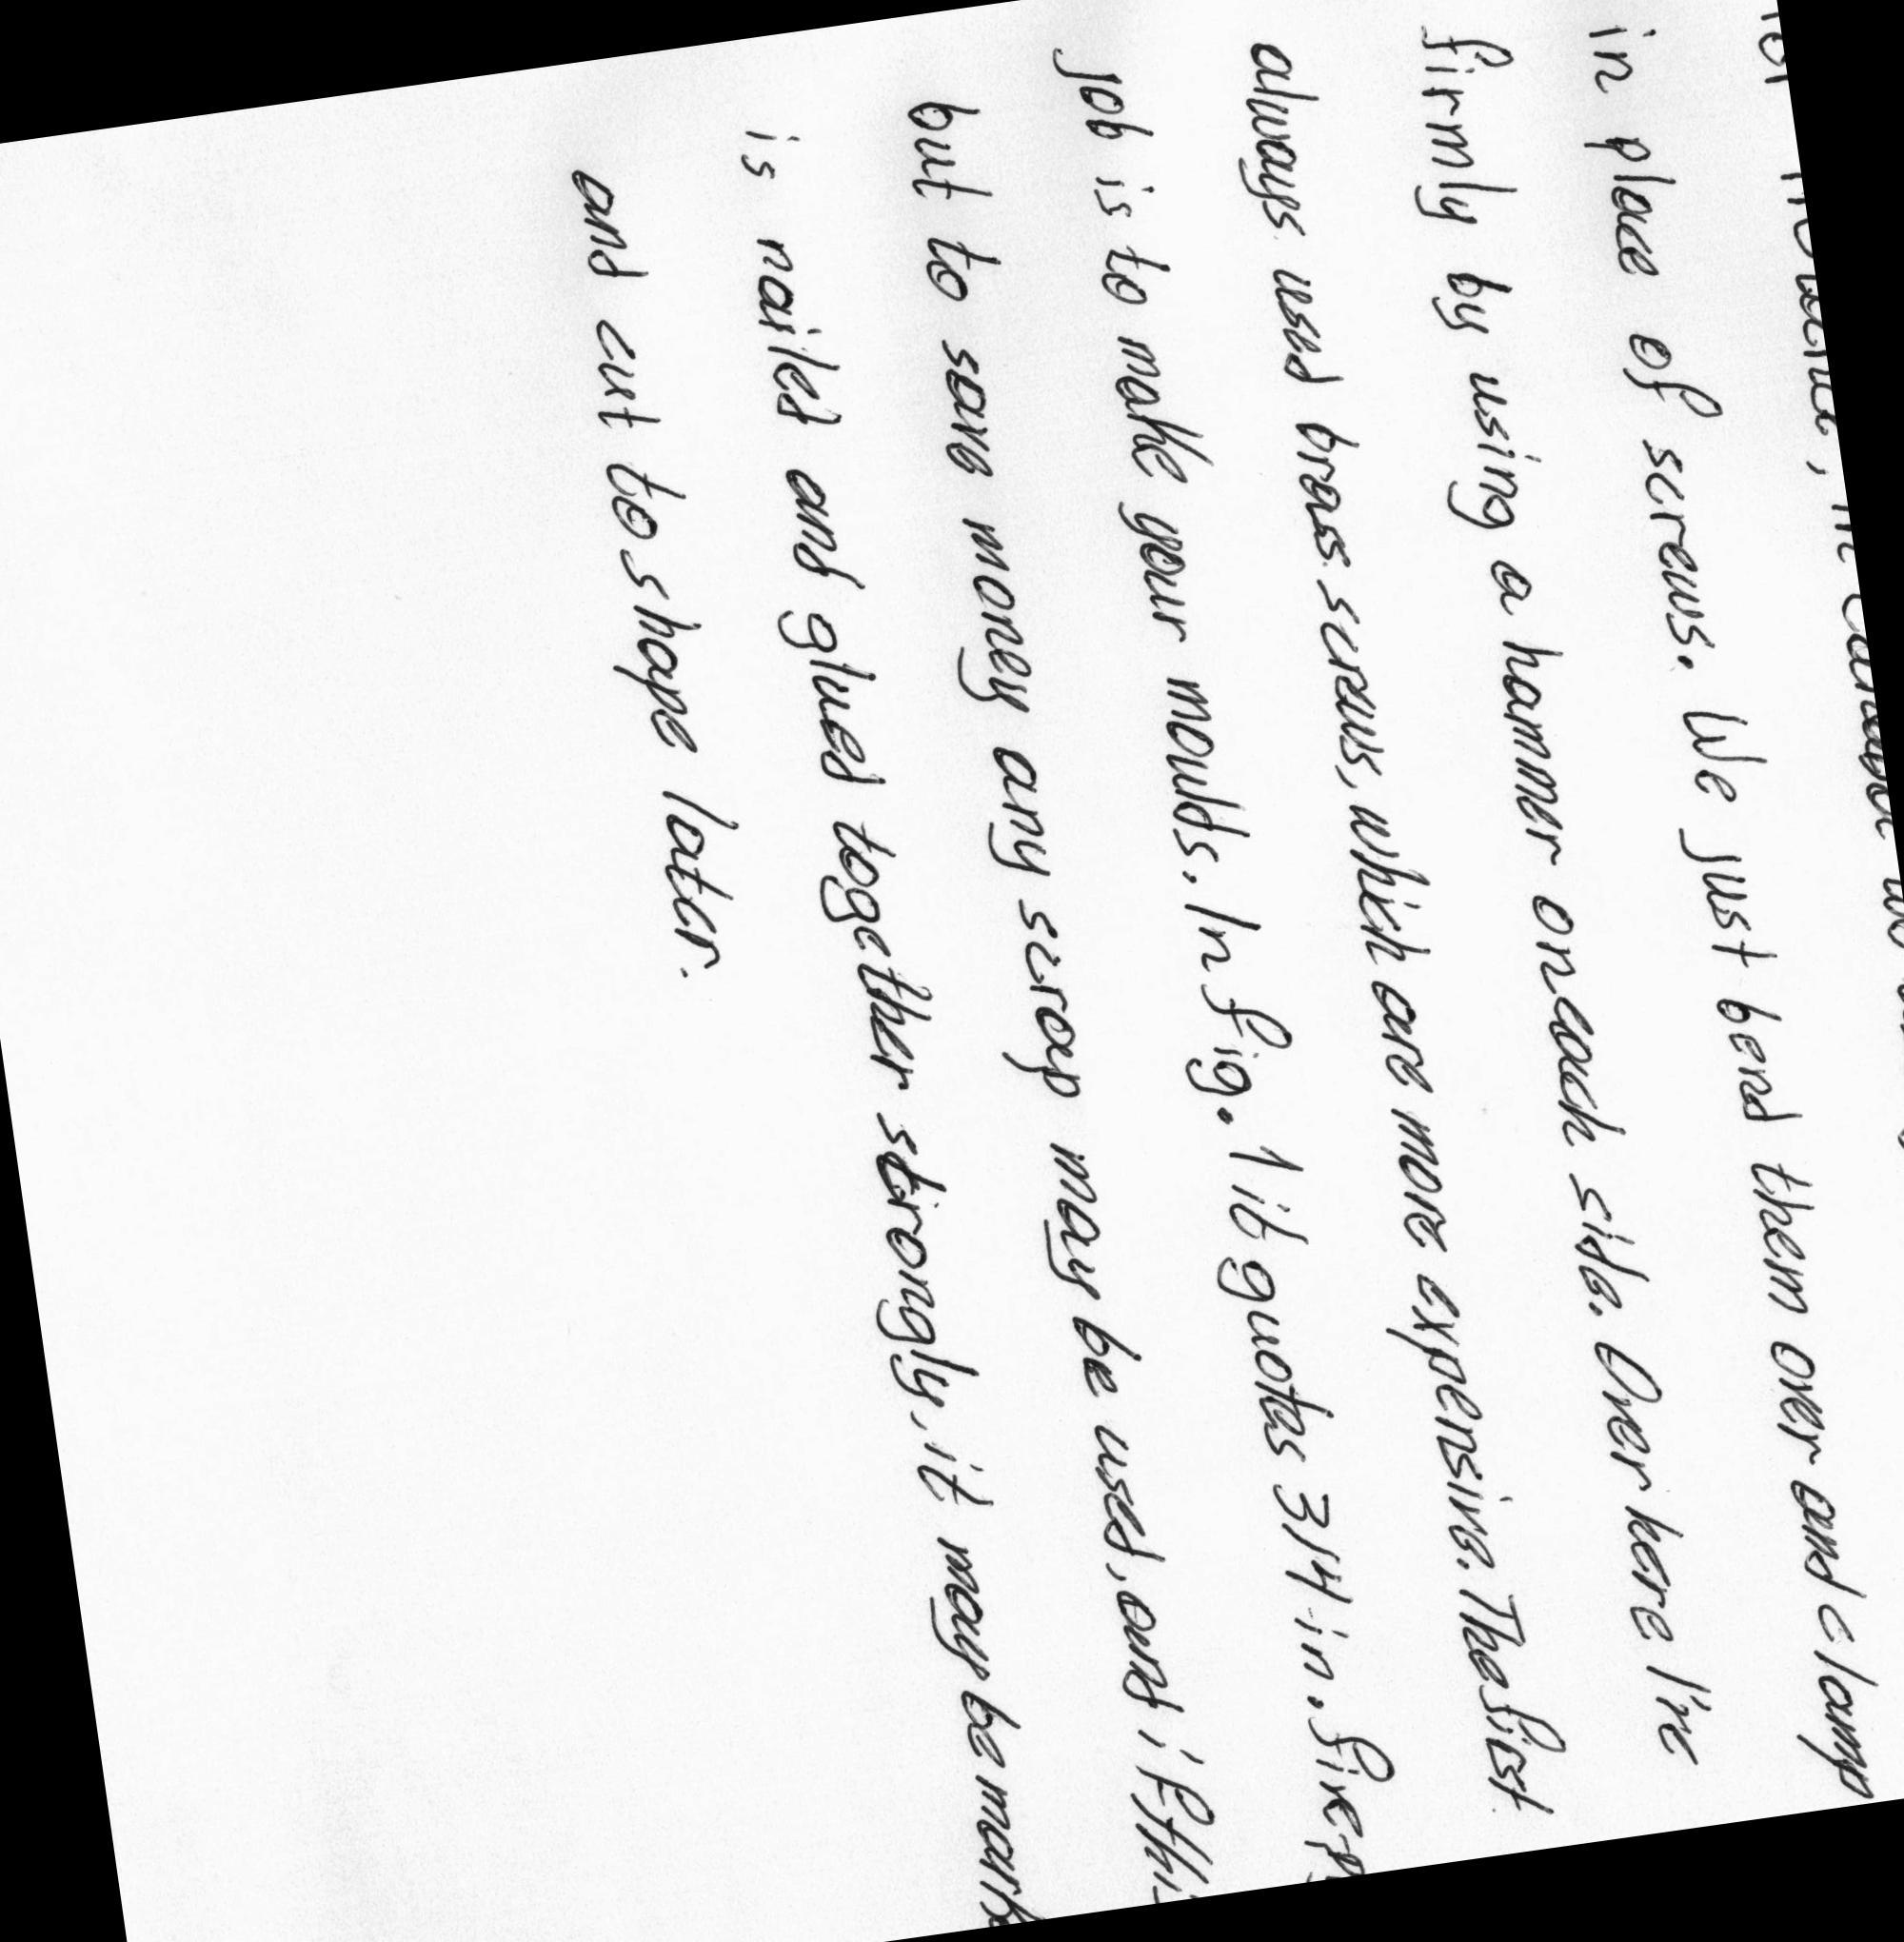 in place of screws. We just bend them over and clamp
firmly by using a hammer on each side. Over here I've
always used brass screws, which are more expensive. The first
job is to make your moulds. In fig. 1 it quotes 3/4 in. five-p
but to save money any scrap may be used, and if this
is nailed and glued together strongly, it may be mark
and cut to shape later.